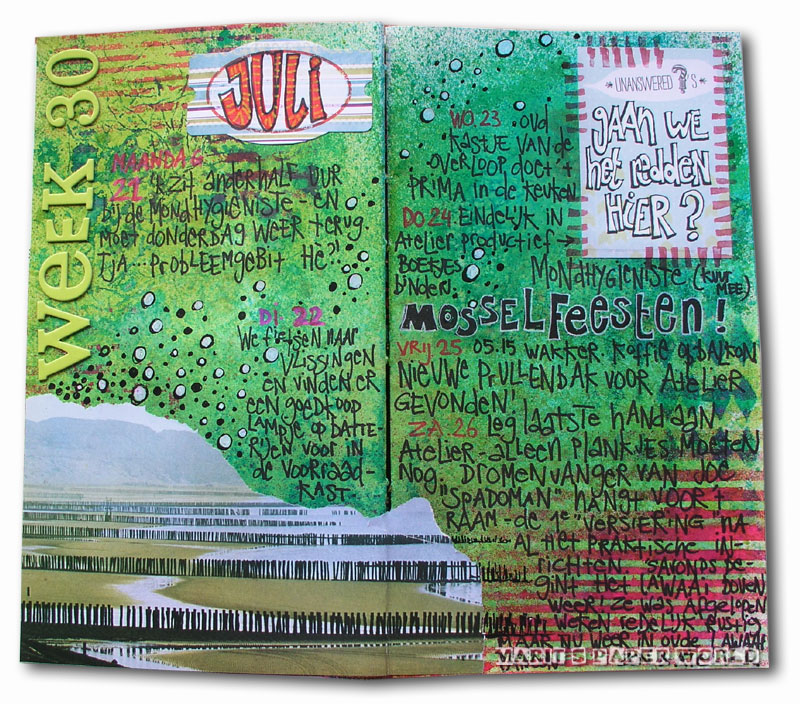 WEEK 30
JULI
MAANDAG
21 'K ZIT ANDERHALF UUR
bij de MONDHYGIENISTE EN
MOET DONDERDAG WEER TERUG.
TJA... PROBLEEMGEBIT HE?!
Di 22
We fietsen naar
VLISSINGEN
EN VINDEN ER
EEN GOEDKOOP
LAMPJE OP BATTE
RIJEN VOOR IN
de VOORRAAD-
KAST.
WO.23 oud
KASTJE VAN de
OVERLOOP doet 't
PRIMA in de KEUKEN
DO.24 EINDELIJK IN
Atelier productief →
BOEKJES
binden.
UNANSWERED ?'S
GAAN WE
het redden
HIER?
MONDHYGIENISTE (KUUR MEE)
MOSSELFEESTEN!
VRIJ.25 05.15 WAKKER. KOFFIE OP BALKON
NIEUWE PRULLENBAK VOOR ATELIER
GEVONDEN!
ZA.26 Leg laatste hand aan
Atelier - alleen plankjes moeten
NOG. DROMENVANGER VAN JOE
"SPADOMAN" hangt VOOR 't
RAAM - de 1e VERSIERING NA
AL HET PRAKTISCHE IN-
RICHTEN. SAVONDS BE-
GINT HET LAWAAI BOVEN
WEER! ZE WAS AFGELOPEN
WEKEN REDELIJK RUSTIG
MAAR NU WEER IN OUDE LAWAAI
MARIT'S PAPER WORLD